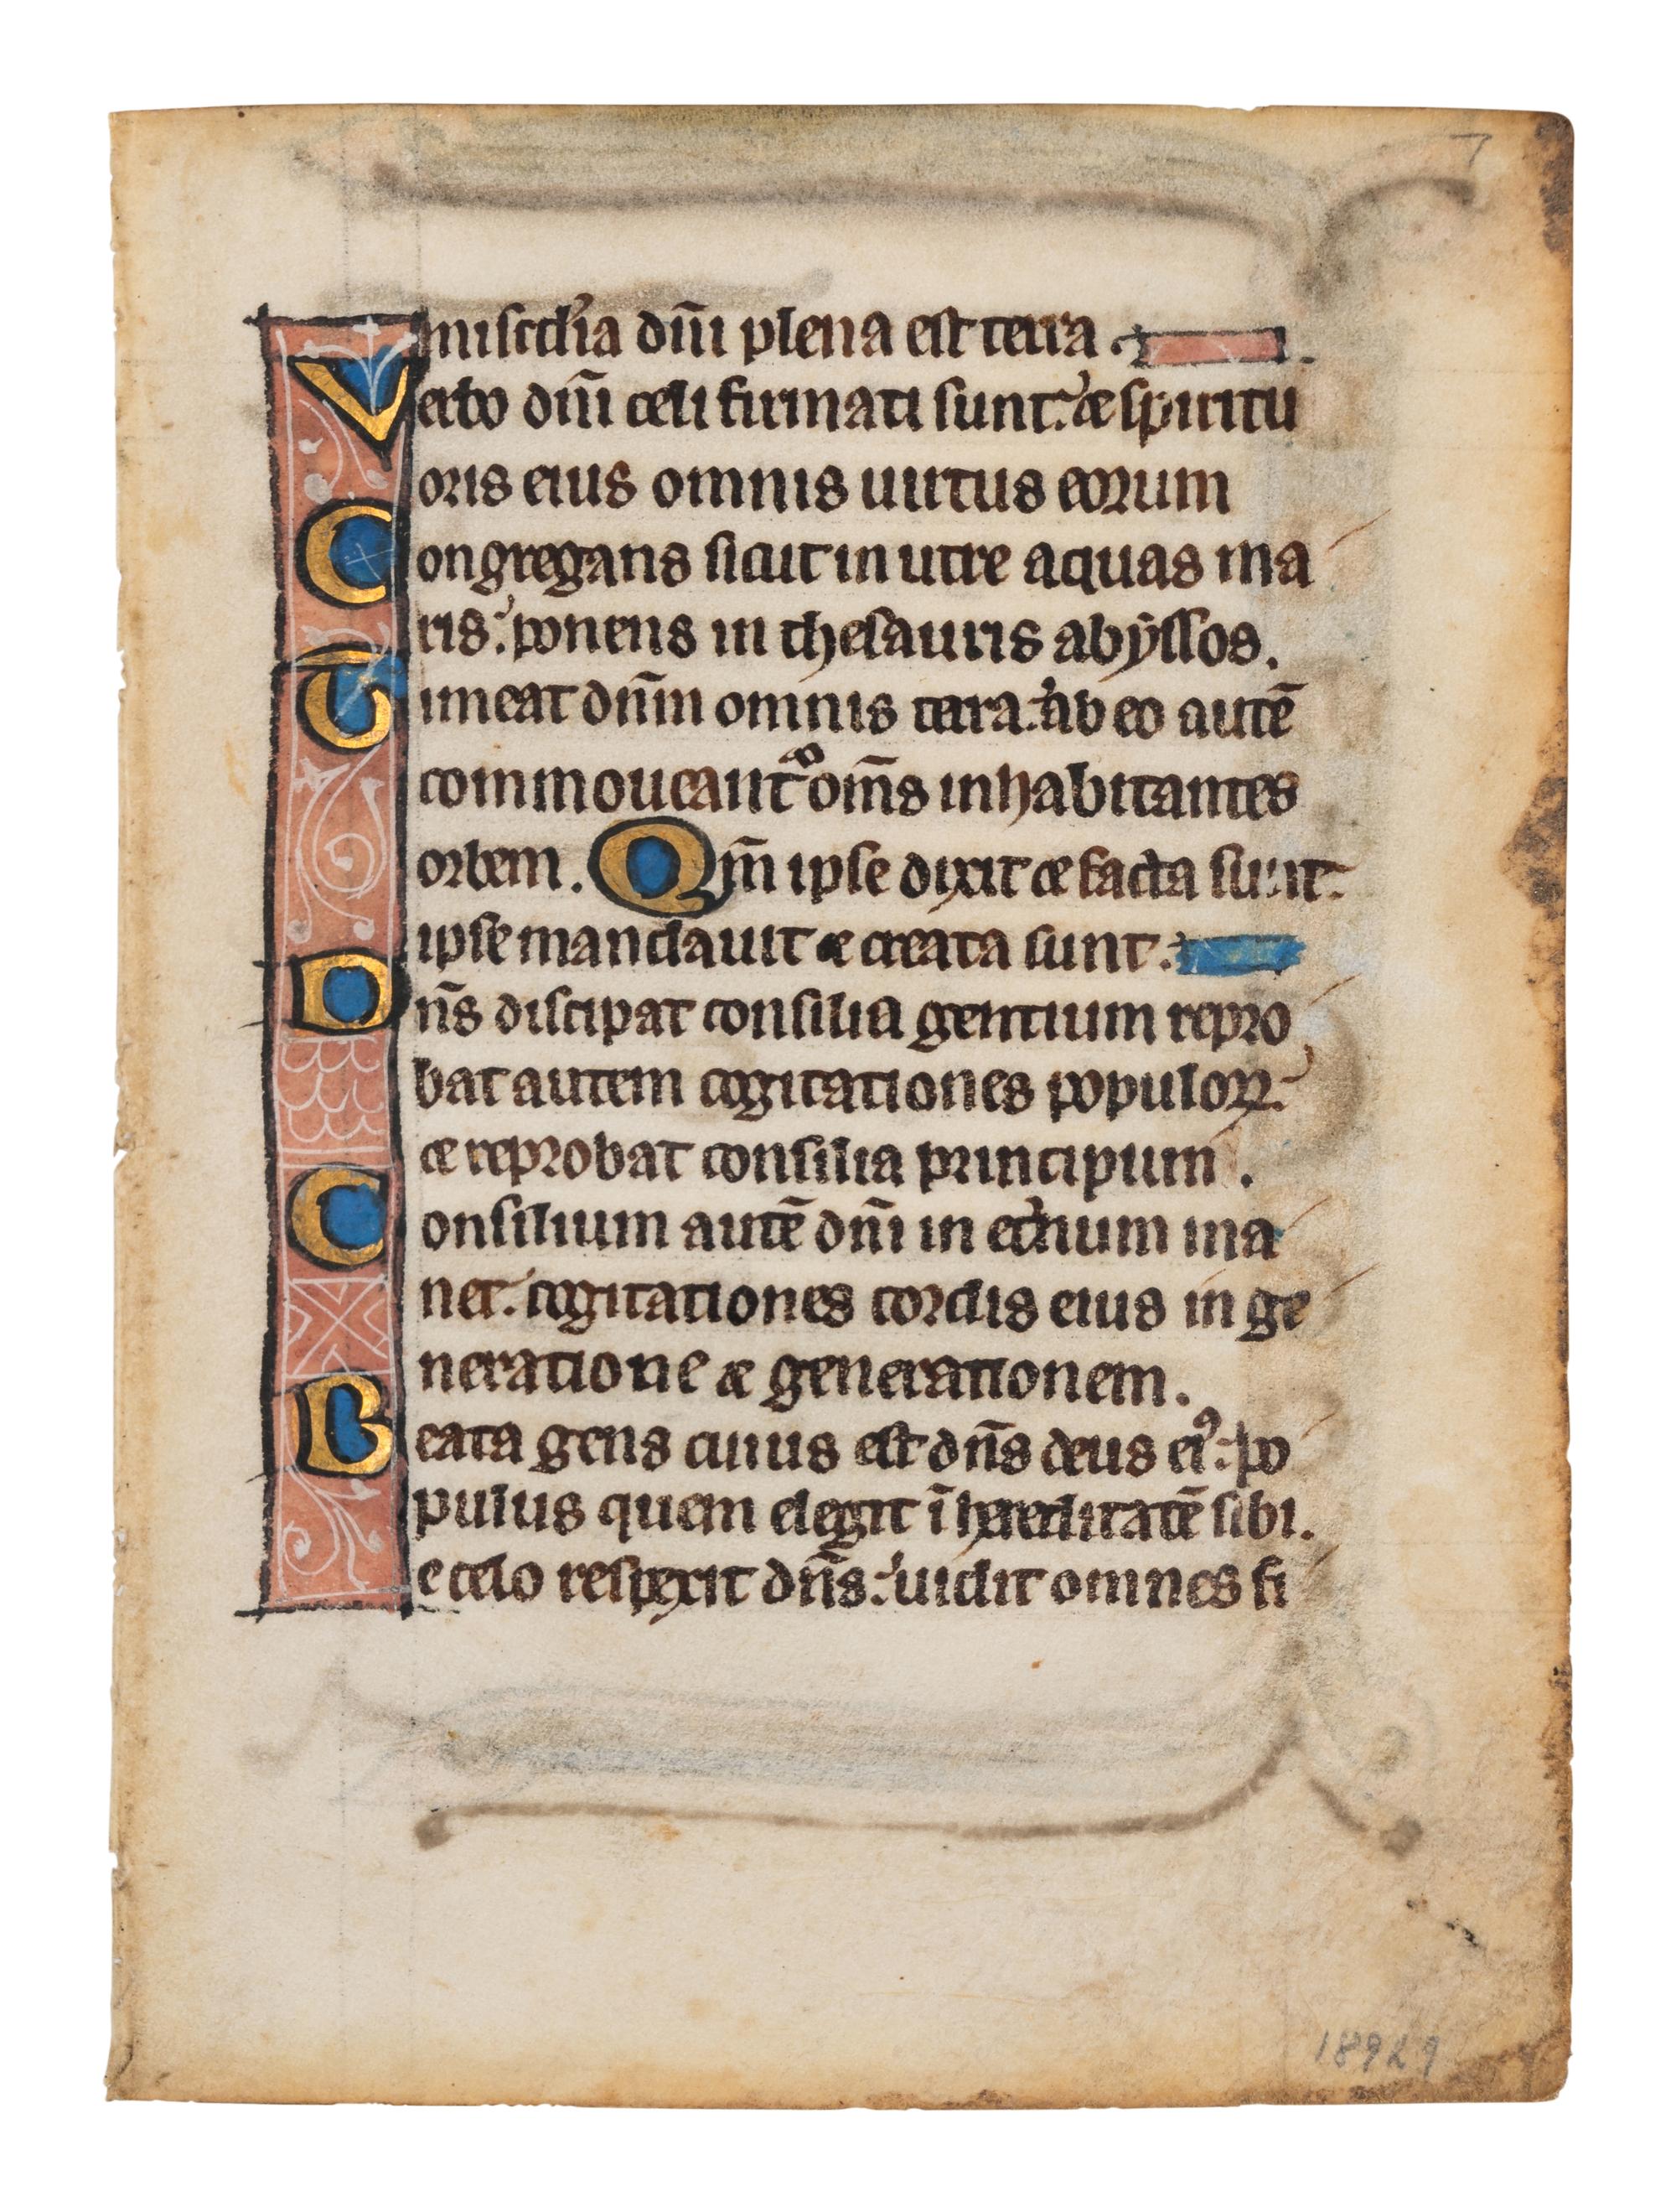 7
misc̄dia dn̄i plena est terra.
Verbo dn̄i celi firmati sunt: & spiritu
oris eius omnis uirtus eorum
Congregans sicut in utre aquas ma
ris: ponens in thesauris abyssos.
Timeat dn̄m omnis terra: ab eo autē
commoueant᷑ om̄s inhabitantes
orbem. Qm̄ ipse dixit & facta sunt:
ipse mandauit & creata sunt.
Dn̄s discipat consilia gentium repro
bat autem cogitationes populoꝝ:
& reprobat consilia principum.
Consilium autē dn̄i in et̾num ma
net: cogitationes cordis eius in ge
neratione & generationem.
Beata gens cuius est dn̄s deus eiꝰ: po
pulus quem elegit ī hereditatē sibi.
e celo respexit dn̄s: uidit omnes fi
18929